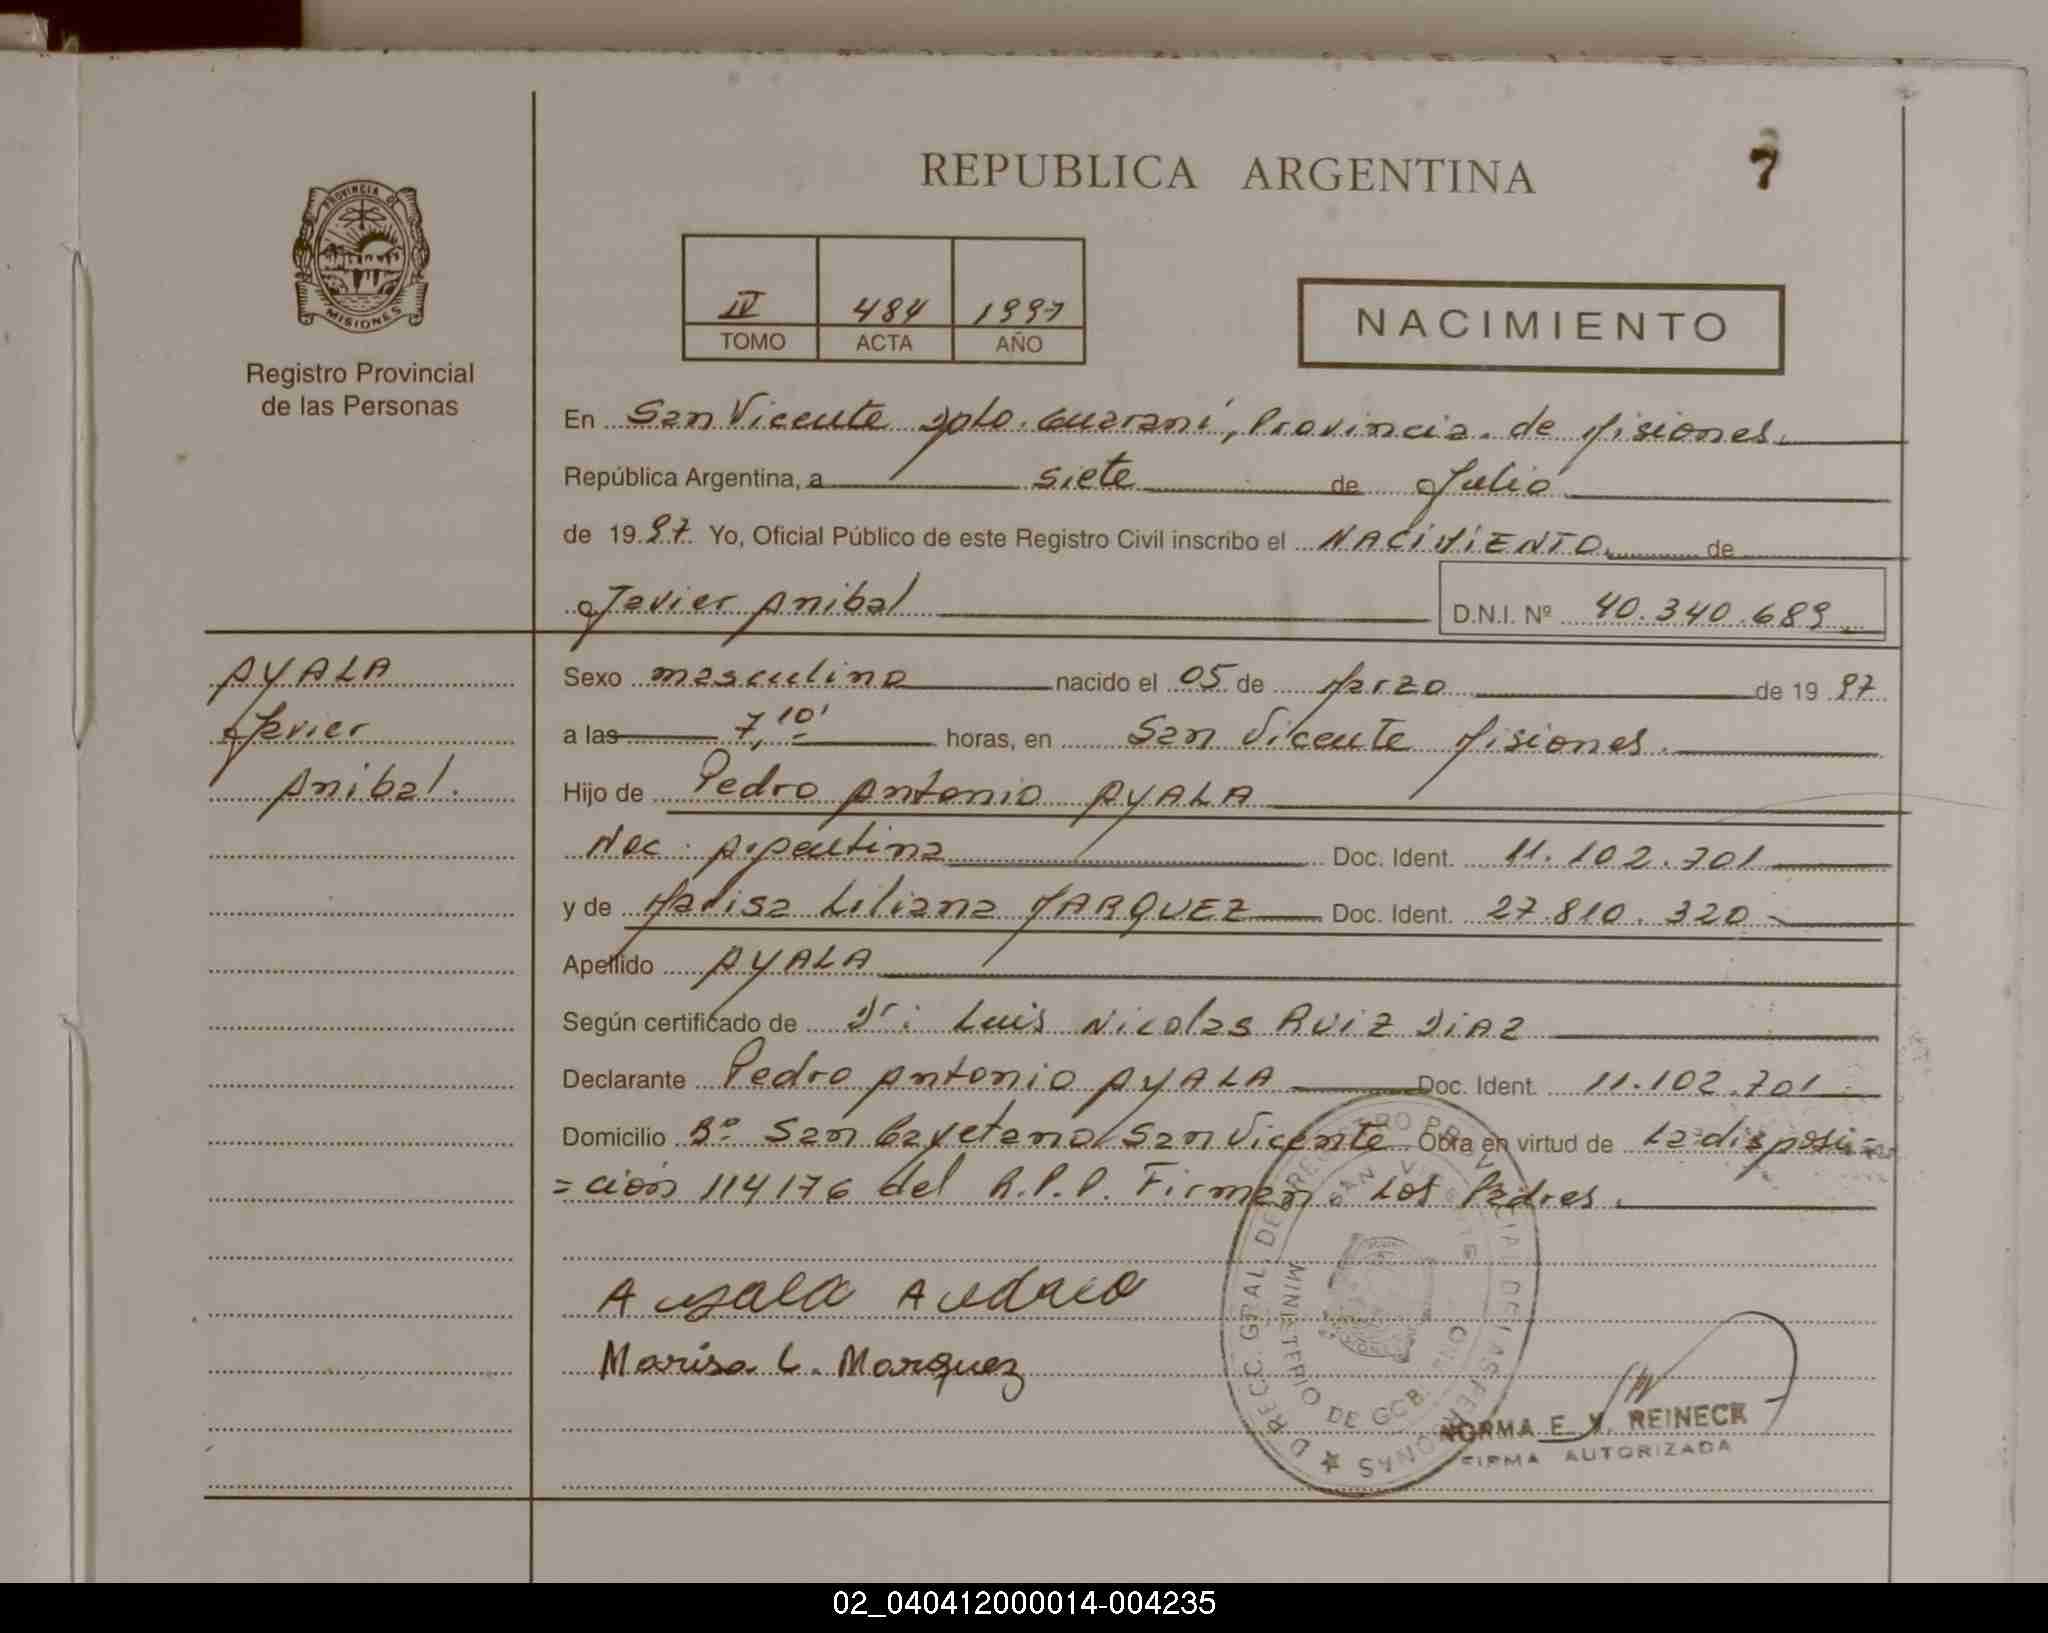 REPUBLICA ARGENTINA
7
PROVINCIA DE
MISIONES
Registro Provincial
de las Personas
IV 484 1997
TOMO ACTA AÑO
NACIMIENTO
En San Vicente Dpto. Guaraní, Provincia de Misiones.
República Argentina, a siete de Julio
de 1997 Yo, Oficial Público de este Registro Civil inscribo el NACIMIENTO de
Javier Anibal D.N.I. Nº 40.340.689
AYALA
Javier
Anibal.
Sexo masculino nacido el 05 de Marzo de 1997
a las 7,10' horas, en San Vicente Misiones.
Hijo de Pedro Antonio AYALA
Nac. Argentina Doc. Ident. 11.102.701
y de Marisa Liliana MARQUEZ Doc. Ident. 27.810.320
Apellido AYALA
Según certificado de Dr: Luis Nicolas RUIZ DIAZ
Declarante Pedro Antonio AYALA Doc. Ident. 11.102.701
Domicilio Bº San Cayetano San Vicente Obra en virtud de La disposi=
=ción 114176 del R.P.P. Firman Los Padres.
Marisa L. Marquez
NORMA E. V. REINECK
FIRMA AUTORIZADA
02_040412000014-004235